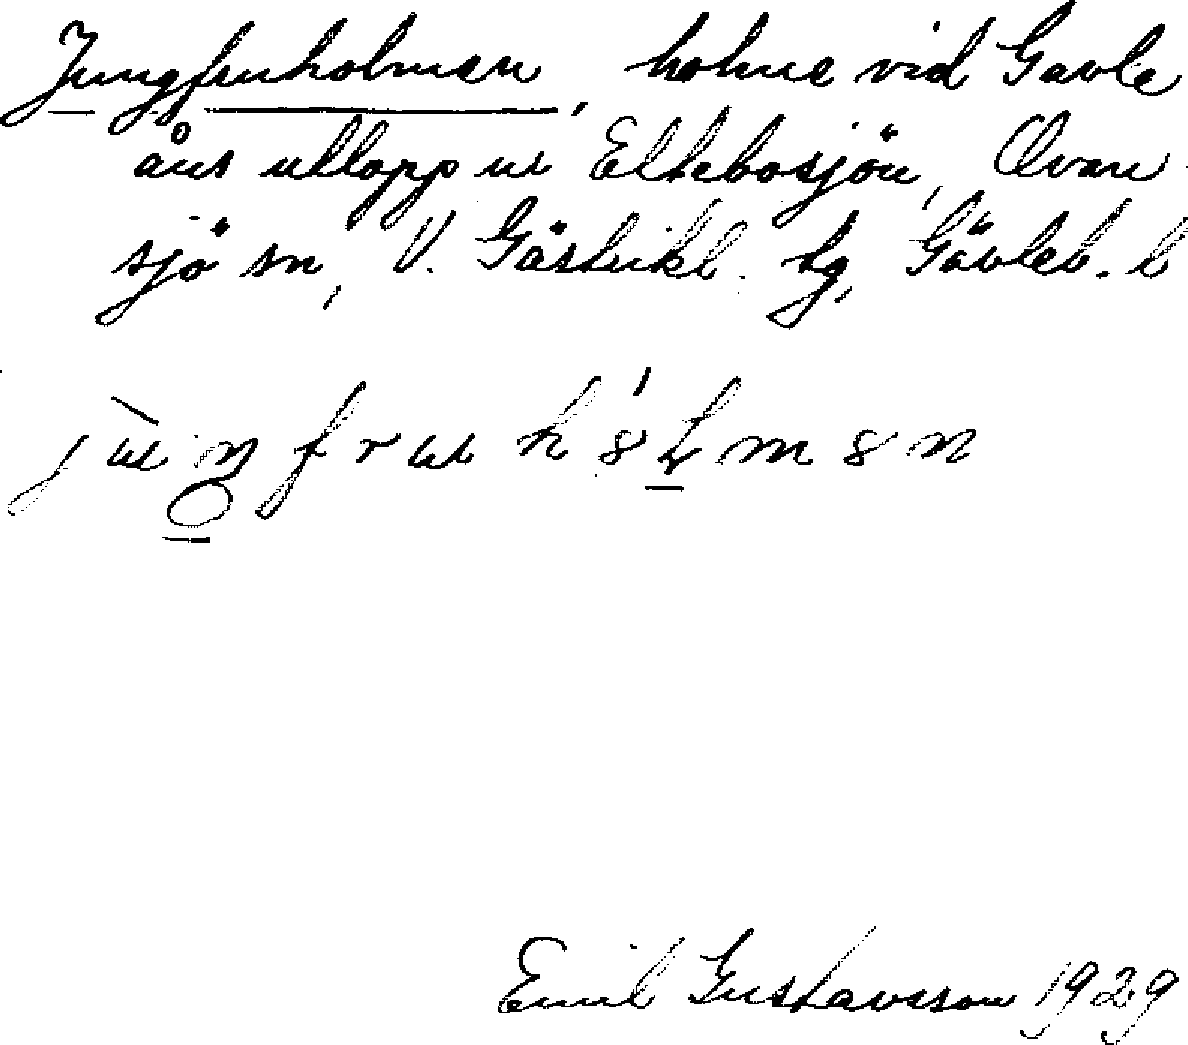 Jungfruholmen, holme vid Gavle
åns utlopp ur Eltebosjön, Ovan
sjö sn, V. Gästrikl. tg, Gävleb. l
Emil Gustavsson 1929